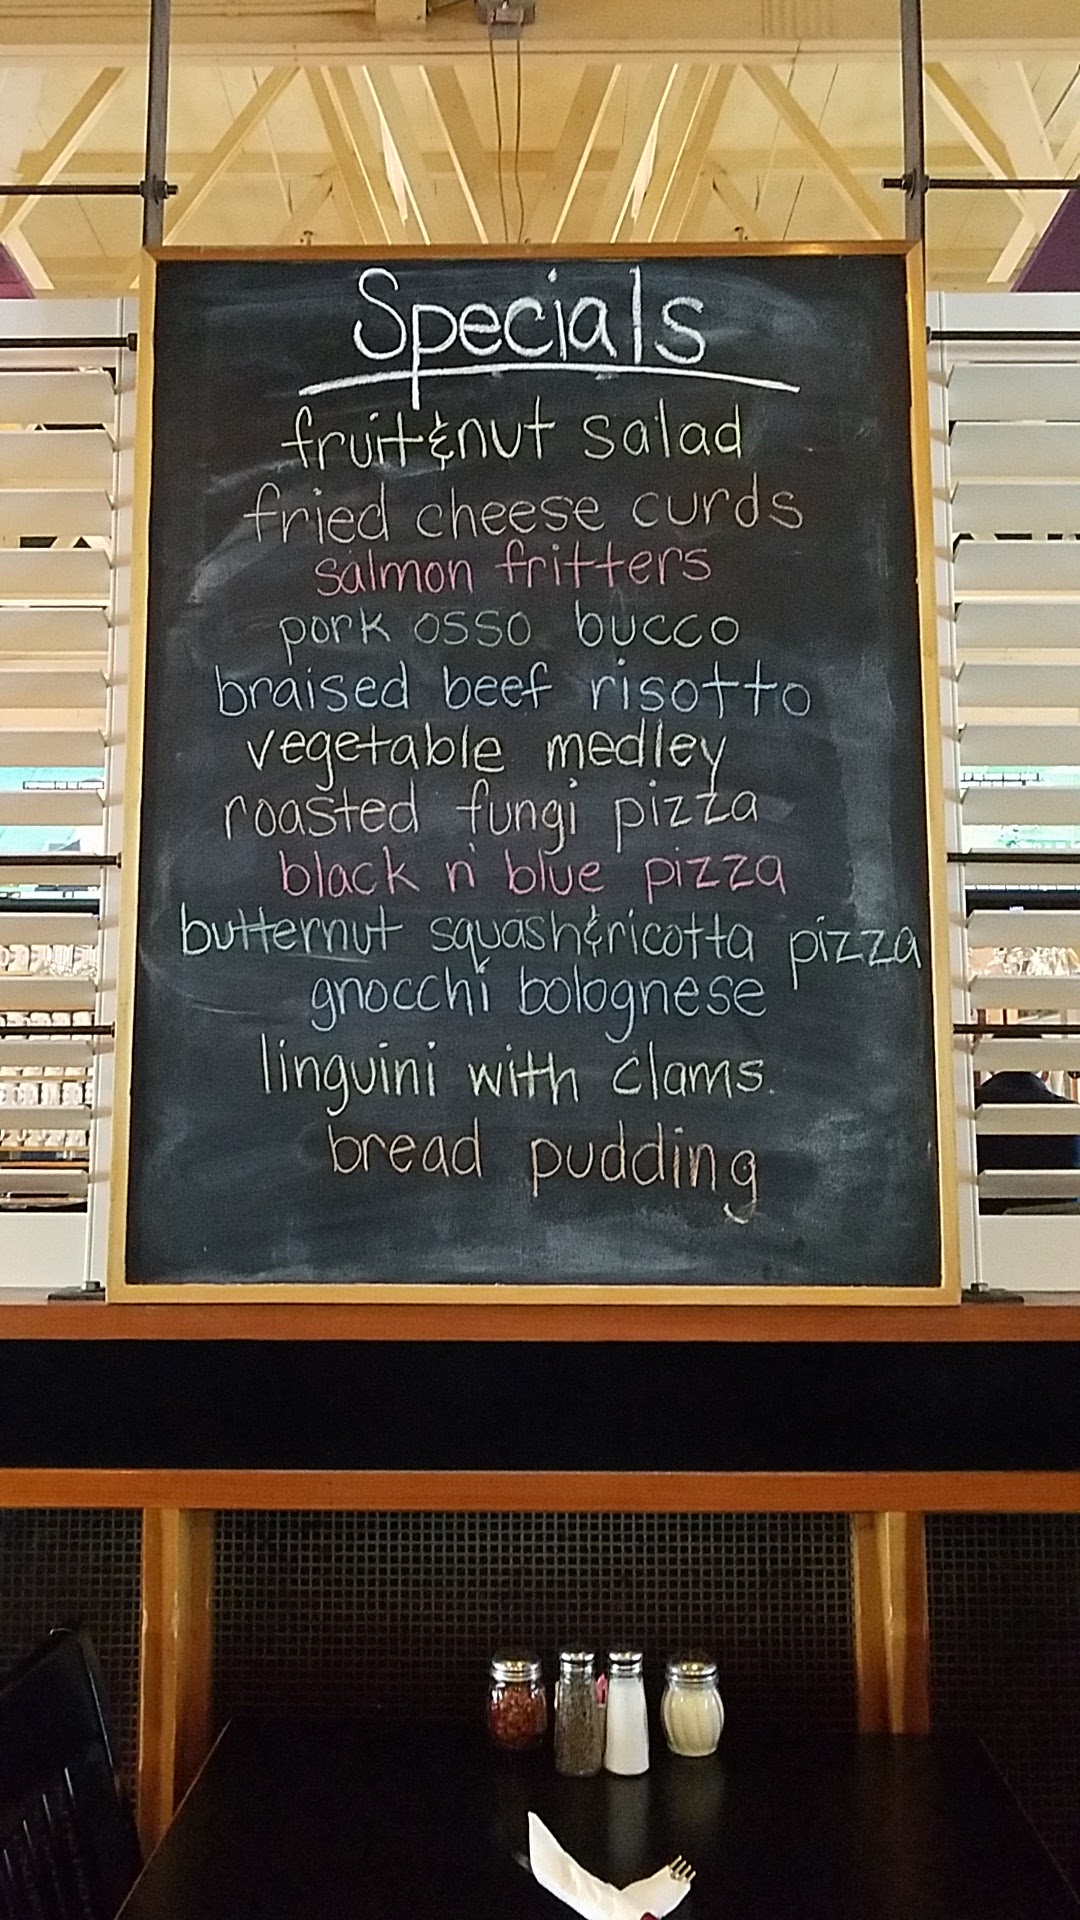 Specials
fruit&nut salad
fried cheese curds
salmon fritters
pork osso bucco
braised beef risotto
vegetable medley
roasted fungi pizza
black n' blue pizza
butternut squash&ricotta pizza
gnocchi bolognese
linguini with clams
bread pudding